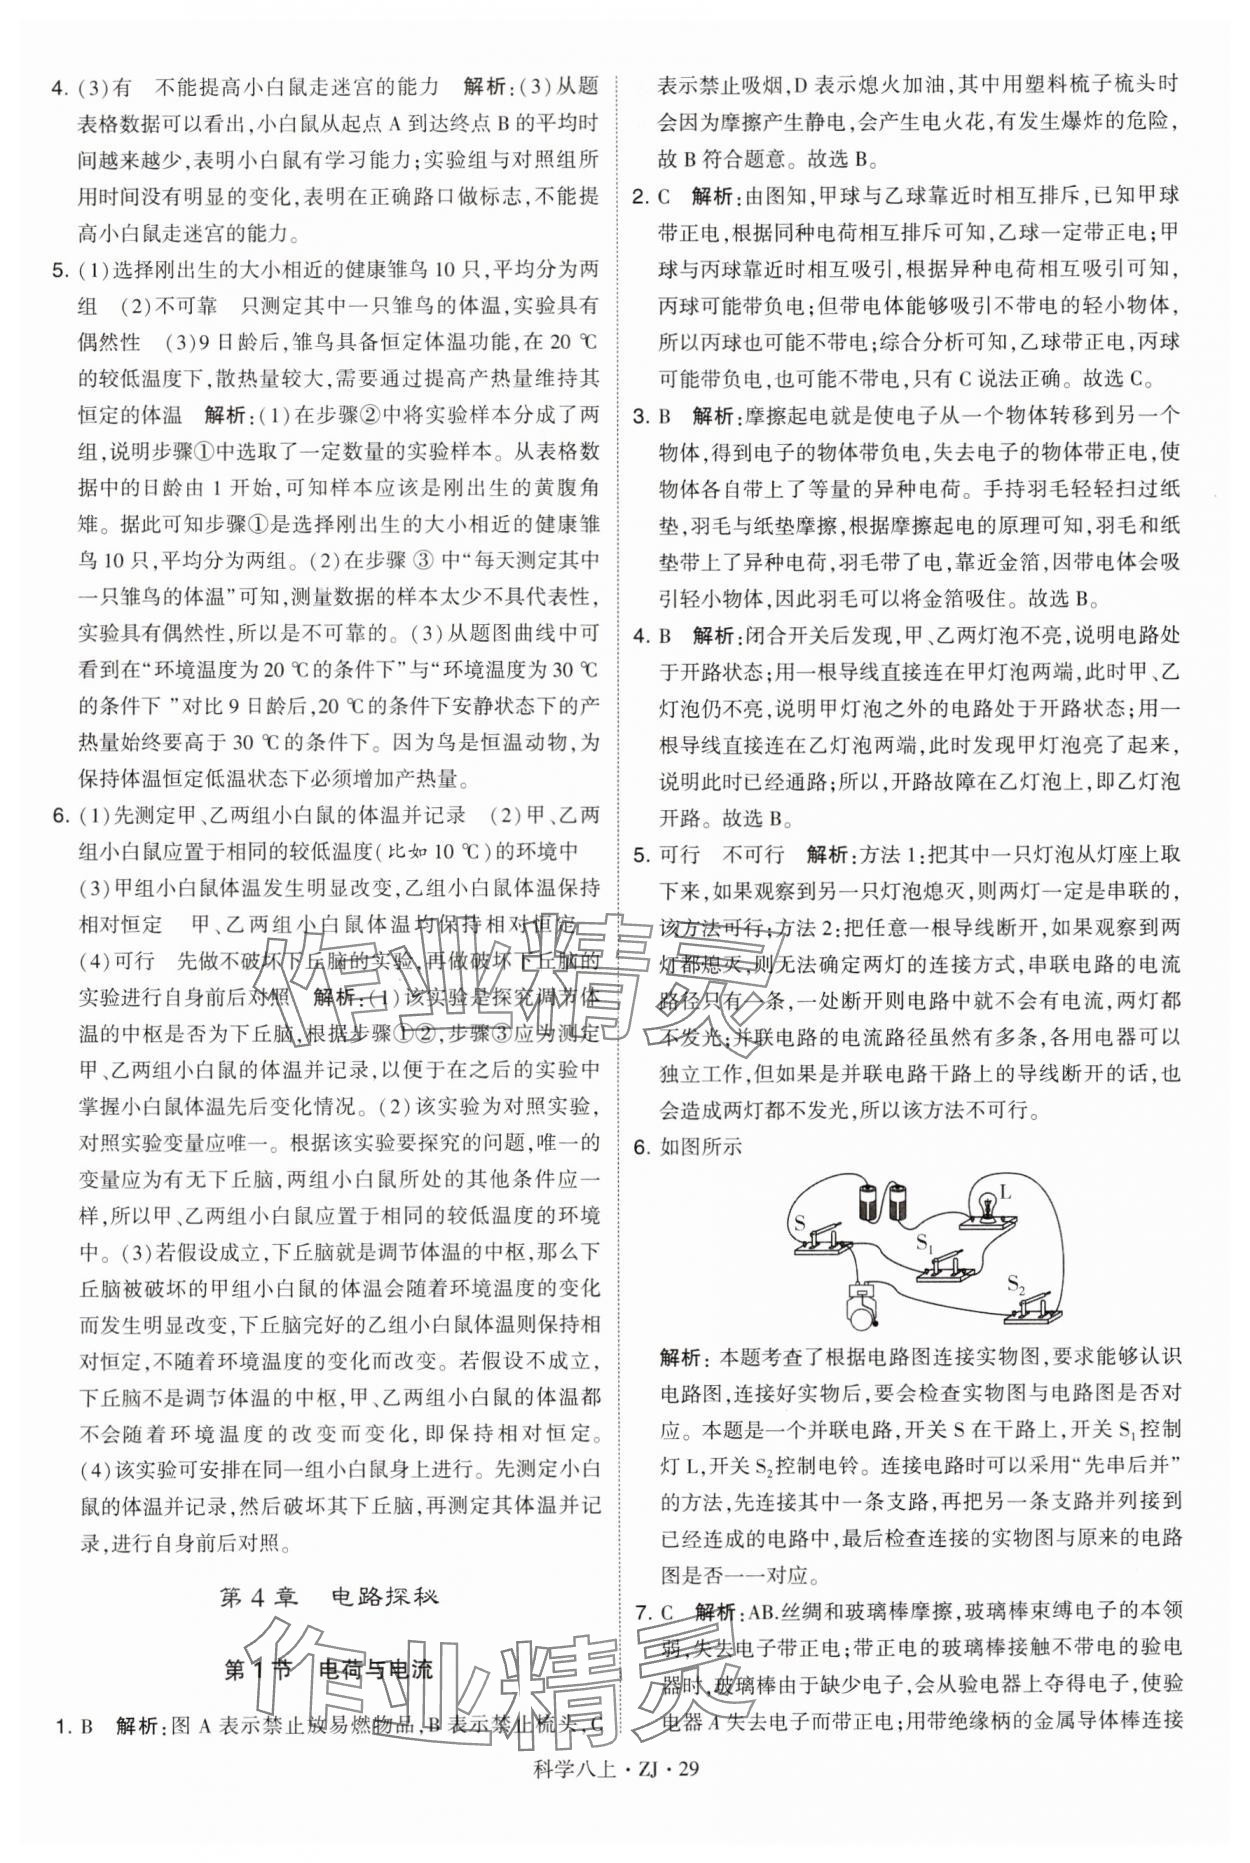 4. (3)有　不能提高小白鼠走迷宫的能力　解析:(3)从题
表格数据可以看出,小白鼠从起点 A 到达终点 B 的平均时
间越来越少,表明小白鼠有学习能力;实验组与对照组所
用时间没有明显的变化,表明在正确路口做标志,不能提
高小白鼠走迷宫的能力。
5. (1)选择刚出生的大小相近的健康雏鸟 10 只,平均分为两
组　(2)不可靠　只测定其中一只雏鸟的体温,实验具有
偶然性　(3)9 日龄后,雏鸟具备恒定体温功能,在 20 ℃
的较低温度下,散热量较大,需要通过提高产热量维持其
恒定的体温　解析:(1)在步骤②中将实验样本分成了两
组,说明步骤①中选取了一定数量的实验样本。从表格数
据中的日龄由 1 开始,可知样本应该是刚出生的黄腹角
雉。据此可知步骤①是选择刚出生的大小相近的健康雏
鸟 10 只,平均分为两组。(2)在步骤 ③ 中“每天测定其中
一只雏鸟的体温”可知,测量数据的样本太少不具代表性,
实验具有偶然性,所以是不可靠的。(3)从题图曲线中可
看到在“环境温度为 20 ℃的条件下”与“环境温度为 30 ℃
的条件下 ”对比 9 日龄后,20 ℃的条件下安静状态下的产
热量始终要高于 30 ℃的条件下。因为鸟是恒温动物,为
保持体温恒定低温状态下必须增加产热量。
6. (1)先测定甲、乙两组小白鼠的体温并记录　(2)甲、乙两
组小白鼠应置于相同的较低温度(比如 10 ℃)的环境中
(3)甲组小白鼠体温发生明显改变,乙组小白鼠体温保持
相对恒定　甲、乙两组小白鼠体温均保持相对恒定
(4)可行　先做不破坏下丘脑的实验,再做破坏下丘脑的
实验进行自身前后对照　解析:(1)该实验是探究调节体
温的中枢是否为下丘脑,根据步骤①②,步骤③应为测定
甲、乙两组小白鼠的体温并记录,以便于在之后的实验中
掌握小白鼠体温先后变化情况。(2)该实验为对照实验,
对照实验变量应唯一。根据该实验要探究的问题,唯一的
变量应为有无下丘脑,两组小白鼠所处的其他条件应一
样,所以甲、乙两组小白鼠应置于相同的较低温度的环境
中。(3)若假设成立,下丘脑就是调节体温的中枢,那么下
丘脑被破坏的甲组小白鼠的体温会随着环境温度的变化
而发生明显改变,下丘脑完好的乙组小白鼠体温则保持相
对恒定,不随着环境温度的变化而改变。若假设不成立,
下丘脑不是调节体温的中枢,甲、乙两组小白鼠的体温都
不会随着环境温度的改变而变化,即保持相对恒定。
(4)该实验可安排在同一组小白鼠身上进行。先测定小白
鼠的体温并记录,然后破坏其下丘脑,再测定其体温并记
录,进行自身前后对照。
第 4 章　电路探秘
第 1 节　电荷与电流
1. B　解析:图 A 表示禁止放易燃物品,B 表示禁止梳头,C
表示禁止吸烟,D 表示熄火加油,其中用塑料梳子梳头时
会因为摩擦产生静电,会产生电火花,有发生爆炸的危险,
故 B 符合题意。故选 B。
2. C　解析:由图知,甲球与乙球靠近时相互排斥,已知甲球
带正电,根据同种电荷相互排斥可知,乙球一定带正电;甲
球与丙球靠近时相互吸引,根据异种电荷相互吸引可知,
丙球可能带负电;但带电体能够吸引不带电的轻小物体,
所以丙球也可能不带电;综合分析可知,乙球带正电,丙球
可能带负电,也可能不带电,只有 C 说法正确。故选 C。
3. B　解析:摩擦起电就是使电子从一个物体转移到另一个
物体,得到电子的物体带负电,失去电子的物体带正电,使
物体各自带上了等量的异种电荷。手持羽毛轻轻扫过纸
垫,羽毛与纸垫摩擦,根据摩擦起电的原理可知,羽毛和纸
垫带上了异种电荷,羽毛带了电,靠近金箔,因带电体会吸
引轻小物体,因此羽毛可以将金箔吸住。故选 B。
4. B　解析:闭合开关后发现,甲、乙两灯泡不亮,说明电路处
于开路状态;用一根导线直接连在甲灯泡两端,此时甲、乙
灯泡仍不亮,说明甲灯泡之外的电路处于开路状态;用一
根导线直接连在乙灯泡两端,此时发现甲灯泡亮了起来,
说明此时已经通路;所以,开路故障在乙灯泡上,即乙灯泡
开路。故选 B。
5. 可行　不可行　解析:方法 1:把其中一只灯泡从灯座上取
下来,如果观察到另一只灯泡熄灭,则两灯一定是串联的,
该方法可行;方法 2:把任意一根导线断开,如果观察到两
灯都熄灭,则无法确定两灯的连接方式,串联电路的电流
路径只有一条,一处断开则电路中就不会有电流,两灯都
不发光;并联电路的电流路径虽然有多条,各用电器可以
独立工作,但如果是并联电路干路上的导线断开的话,也
会造成两灯都不发光,所以该方法不可行。
6. 如图所示
L
S
S₁
S₂
解析: 本题考查了根据电路图连接实物图,要求能够认识
电路图,连接好实物后,要会检查实物图与电路图是否对
应。本题是一个并联电路,开关 S 在干路上,开关 S₁控制
灯 L,开关 S₂控制电铃。连接电路时可以采用“先串后并”
的方法,先连接其中一条支路,再把另一条支路并列接到
已经连成的电路中,最后检查连接的实物图与原来的电路
图是否一一对应。
7. C　解析:AB.丝绸和玻璃棒摩擦,玻璃棒束缚电子的本领
弱,失去电子带正电;带正电的玻璃棒接触不带电的验电
器时,玻璃棒由于缺少电子,会从验电器上夺得电子,使验
电器 A 失去电子而带正电;用带绝缘柄的金属导体棒连接
科学八上·ZJ·29
作业精灵
作业精灵